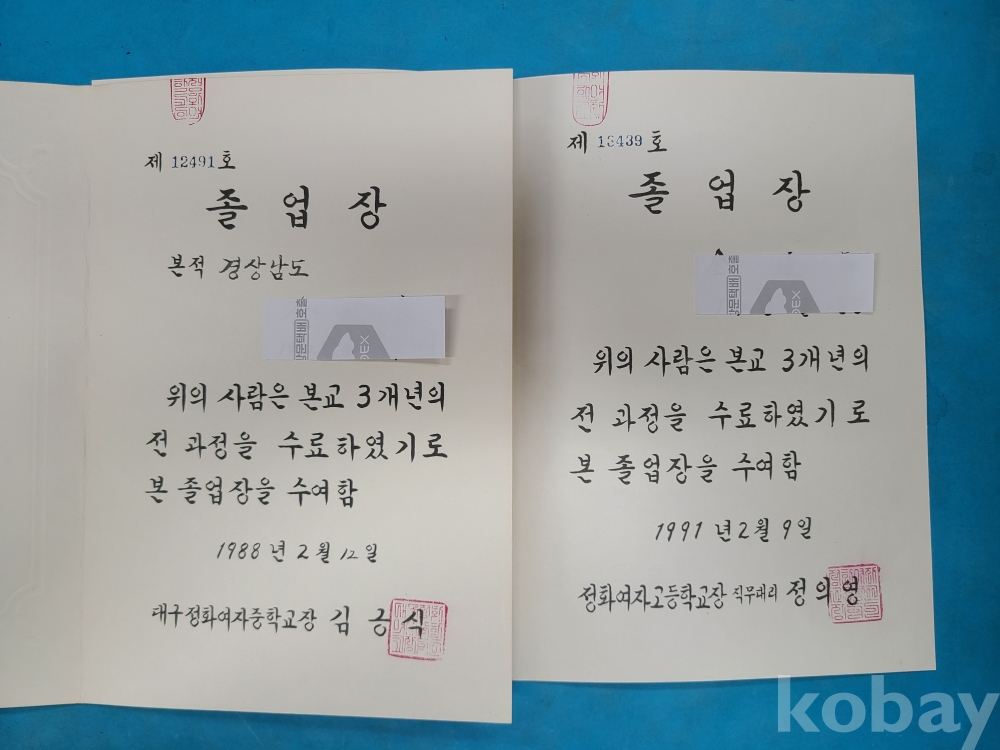 제 12491 호
졸 업 장
본적 경상남도
방문택배 호출
위의 사람은 본교 3개년의
전 과정을 수료하였기로
본 졸업장을 수여함
1988 년 2 월 12 일
대구정화여자중학교장 김 긍 식
제 13439 호
졸 업 장
방문택배 호출
위의 사람은 본교 3개년의
전 과정을 수료하였기로
본 졸업장을 수여함
1991 년 2 월 9 일
정화여자고등학교장 직무대리 정 의 영
kobay